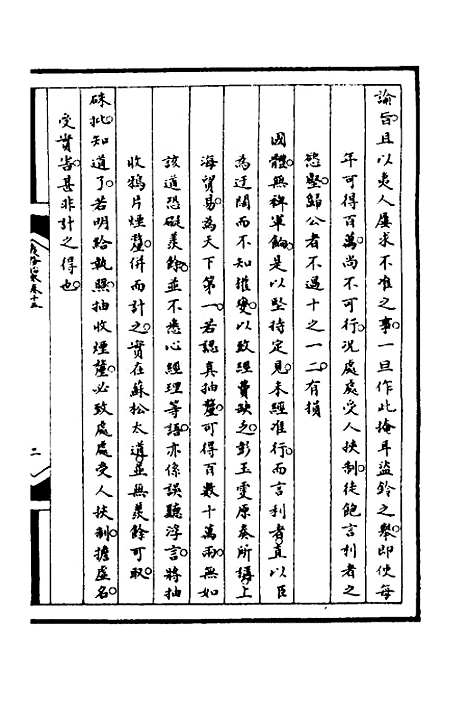 諭旨且以夷人屢求不准之事一旦作此掩耳盜鈴之舉即使每
年可得百萬尚不可行況處處受人挾制徒飽言利者之
慾壑歸公者不過十之一二有損
國體無裨軍餉是以堅持定見未經准行而言利者直以臣
為迂闊而不知權變以致經費缺乏彭玉雯原奏所稱上
海貿易為天下第一若認真抽釐可得百數十萬兩無如
該道恐礙羨餘並不悉心經理等語亦係誤聽浮言將抽
收鴉片煙釐併而計之實在蘇松太道並無羨餘可取
硃批知道了若明給執照抽收煙釐必致處處受人挾制擔虛名
受實害甚非計之得也
卷十五
二